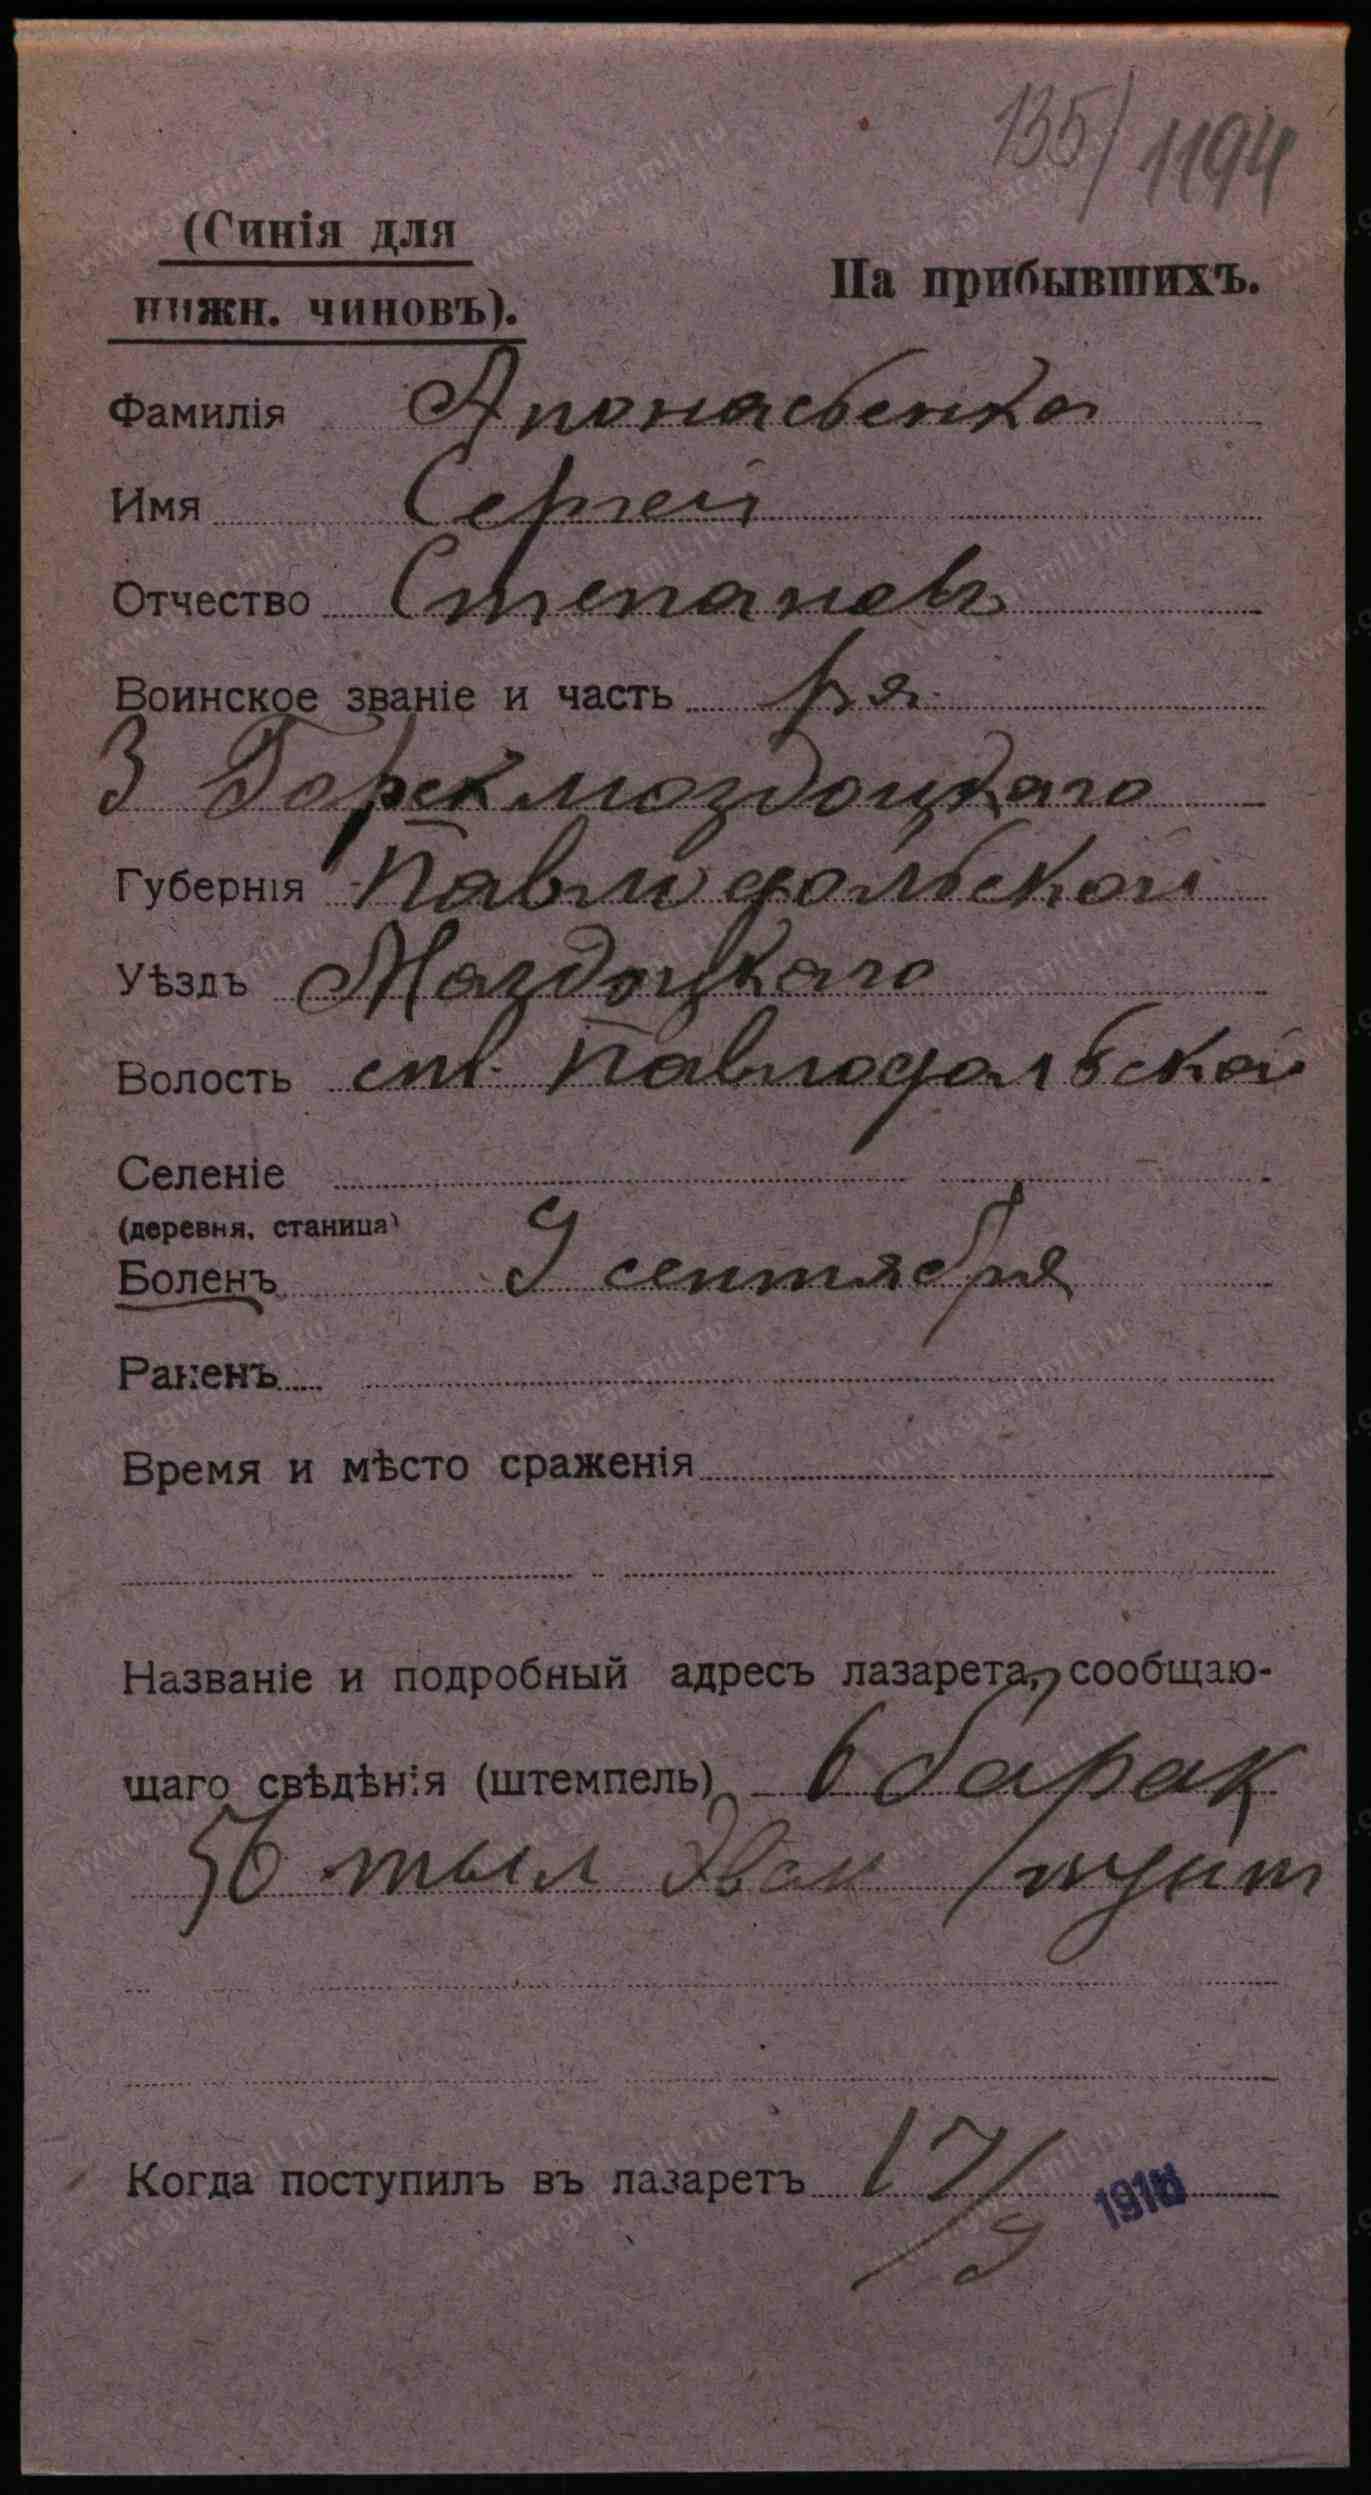 135/1194
(Синія для
нижн. чиновъ).
На прибывшихъ.
Фамилія Апонасьенко
Имя Сергей
Отчество Степановъ
Воинское званіе и часть ря.
3 Горскмоздоцкаго
Губернія Павлодольской
Уѣздъ Маздоцкаго
Волость ст. Павлодольской
Селеніе
(деревня, станица)
Боленъ 9 сентября
Раненъ
Время и мѣсто сраженія
Названіе и подробный адресъ лазарета, сообщаю-
щаго свѣдѣнія (штемпель) 6 барак
56 тыл Эвак пункт
Когда поступилъ въ лазаретъ 17/9